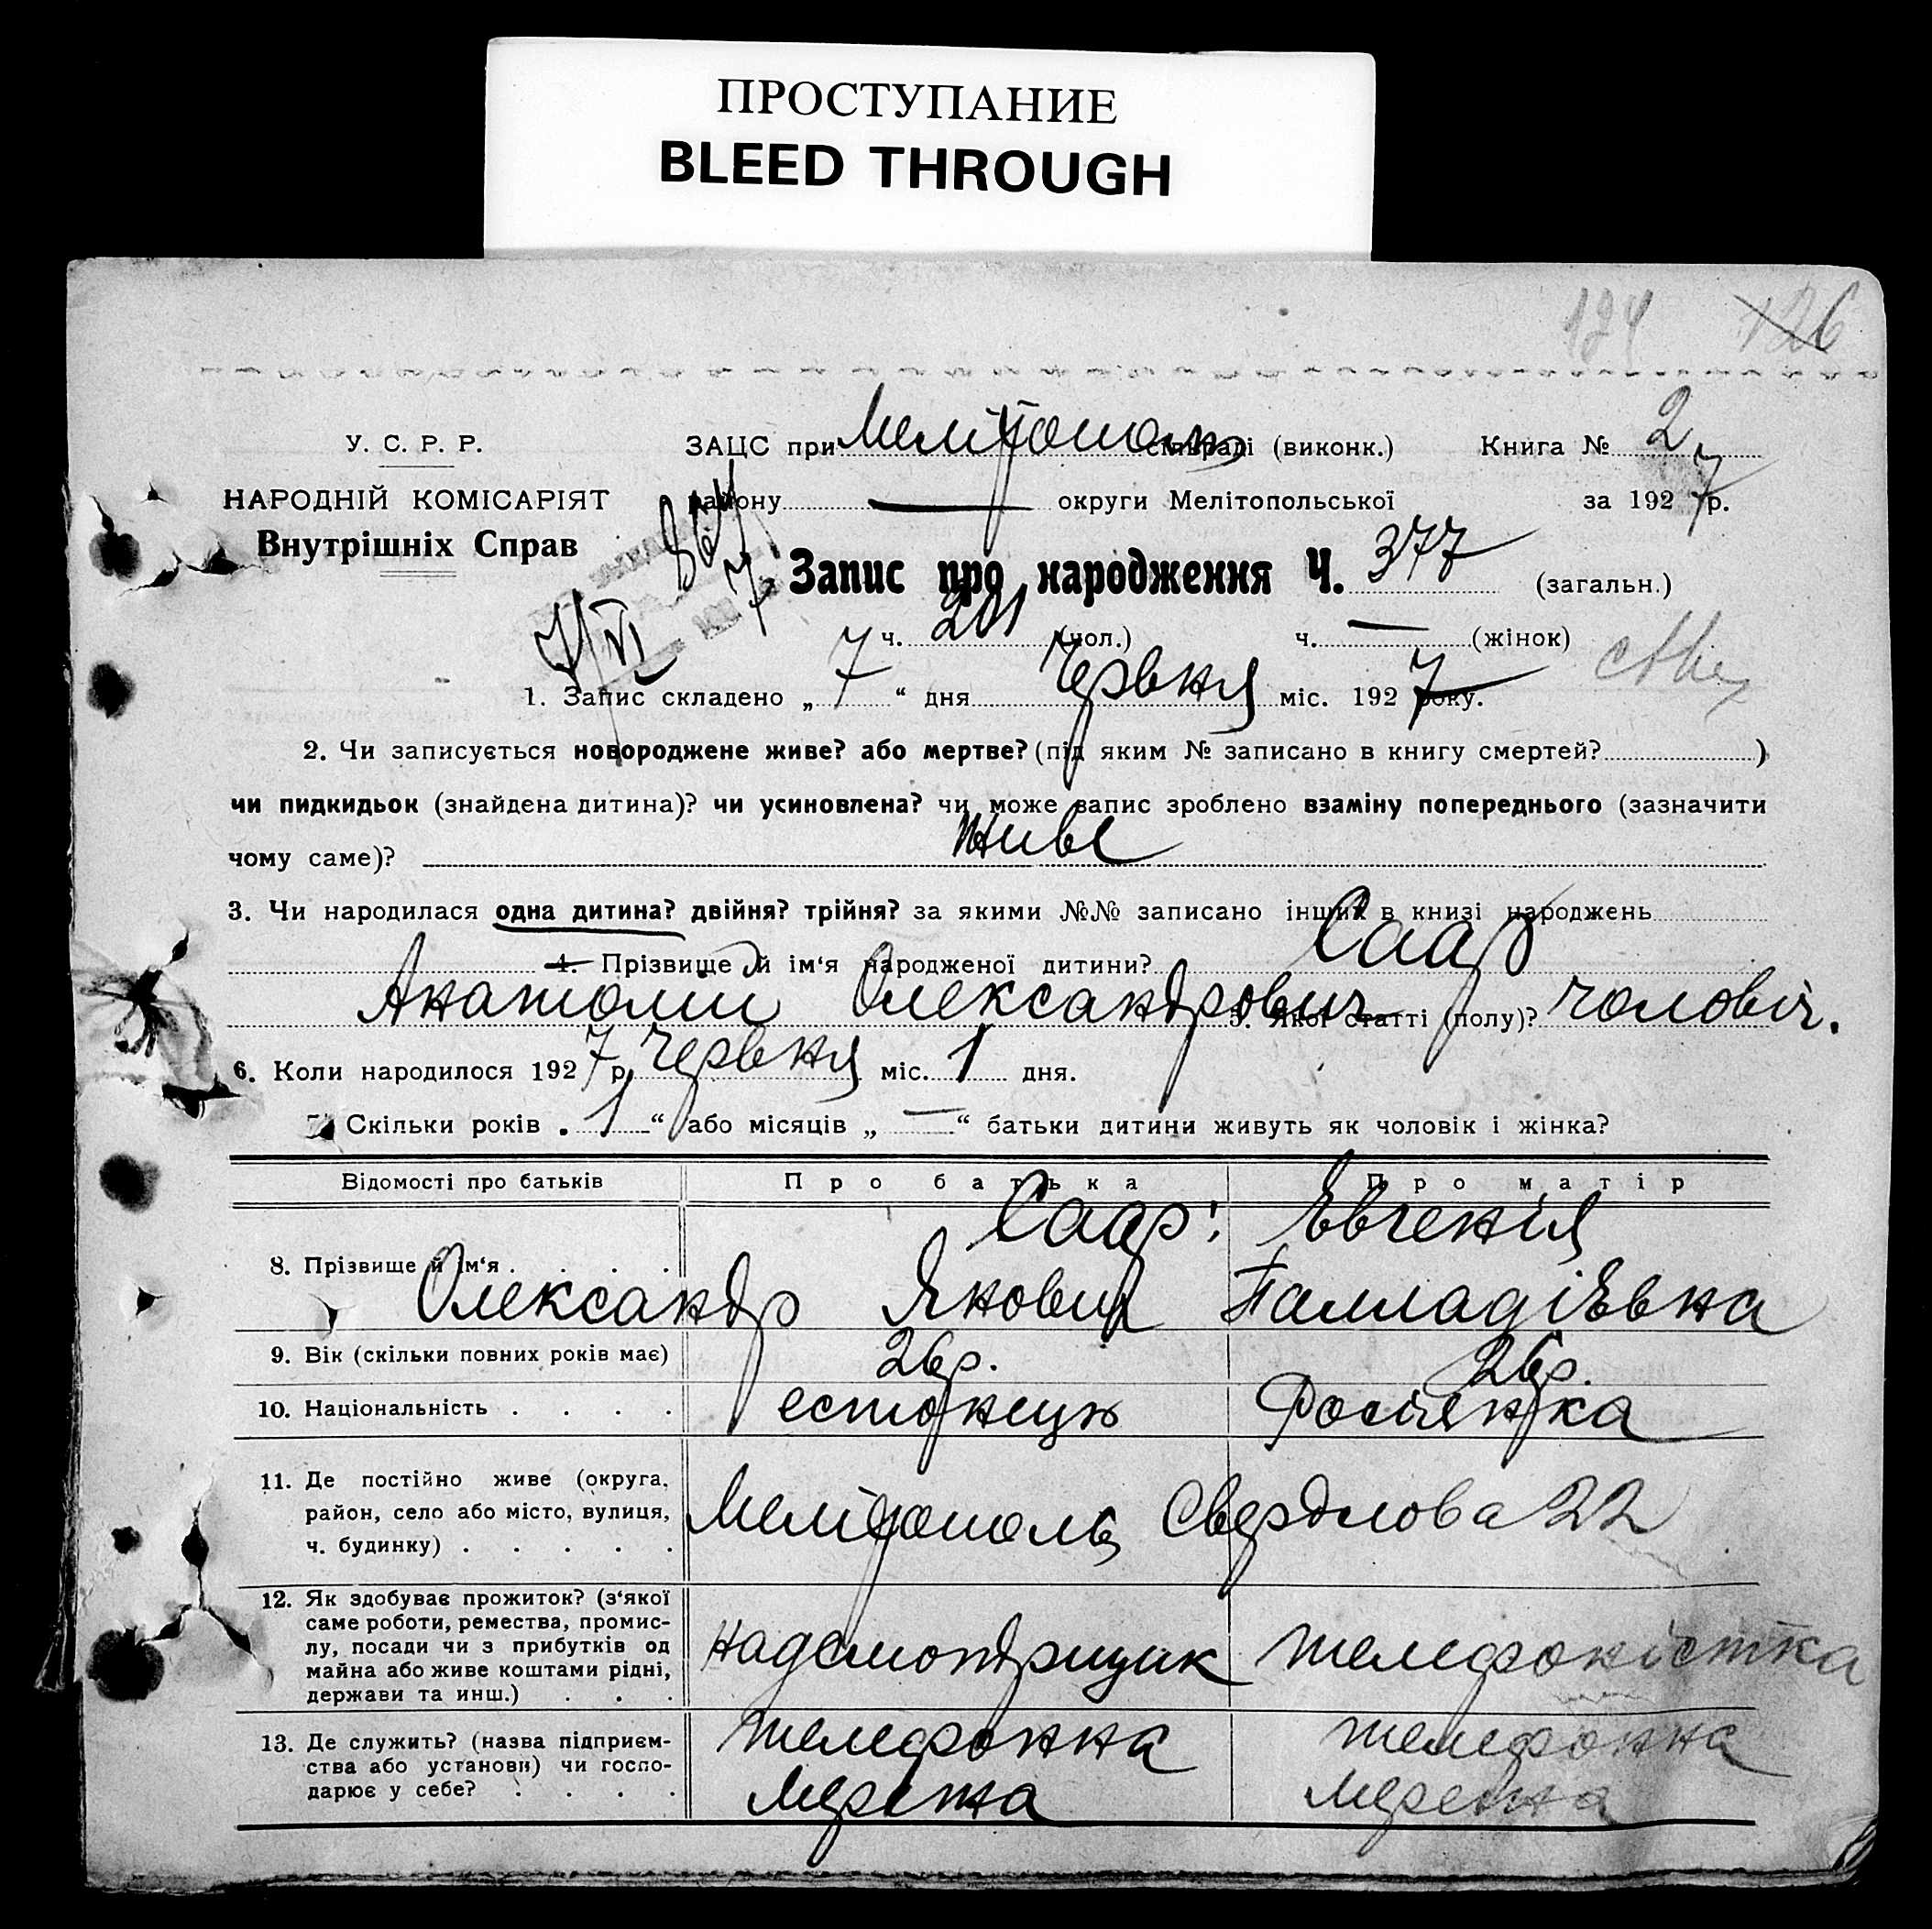 ПРОСТУПАНИЕ
BLEED THROUGH
124 126
У. С. Р. Р.
НАРОДНІЙ КОМІСАРІЯТ
Внутрішніх Справ
ЗАЦС при Мелітополь сільраді (виконк.) Книга № 2
району — округи Мелітопольської за 1927 р.
Запис про народження Ч. 377 (загальн.)
7/VI
ч. 201 (чол.) ч. — (жінок)
1. Запис складено „ 7 “ дня Червня міс. 1927 року.
2. Чи записується новороджене живе? або мертве? (під яким № записано в книгу смертей? )
чи пидкидьок (знайдена дитина)? чи усиновлена? чи може запис зроблено взаміну попереднього (зазначити
чому саме)? живе
3. Чи народилася одна дитина? двійня? трійня? за якими №№ записано інших в книзі народжень
4. Прізвище й ім‘я народженої дитини? Саар
Анатолий Олександрович 5. Якої статті (полу)? чоловіч.
6. Коли народилося 1927 р. Червня міс. 1 дня.
7. Скільки років „ 1 “ або місяців „ — “ батьки дитини живуть як чоловік і жінка?
Відомості про батьків Про батька Про матір
8. Прізвище й ім‘я . . . . Саар: Євгенія
Олександр Якович Палладієвна
9. Вік (скільки повних років має) 26 р. 26 р.
10. Національність . . . . естонець Росіянка
11. Де постійно живе (округа,
район, село або місто, вулиця,
ч. будинку) . . . . . Мелітополь Свердлова 22
12. Як здобуває прожиток? (з‘якої
саме роботи, ремества, промис-
лу, посади чи з прибутків од
майна або живе коштами рідні,
держави та инш.) . . . надсмотрщик телефоністка
13. Де служить? (назва підприєм-
ства або установи) чи госпо-
дарює у себе? . . . . телефонна телефонна
мережа мережа